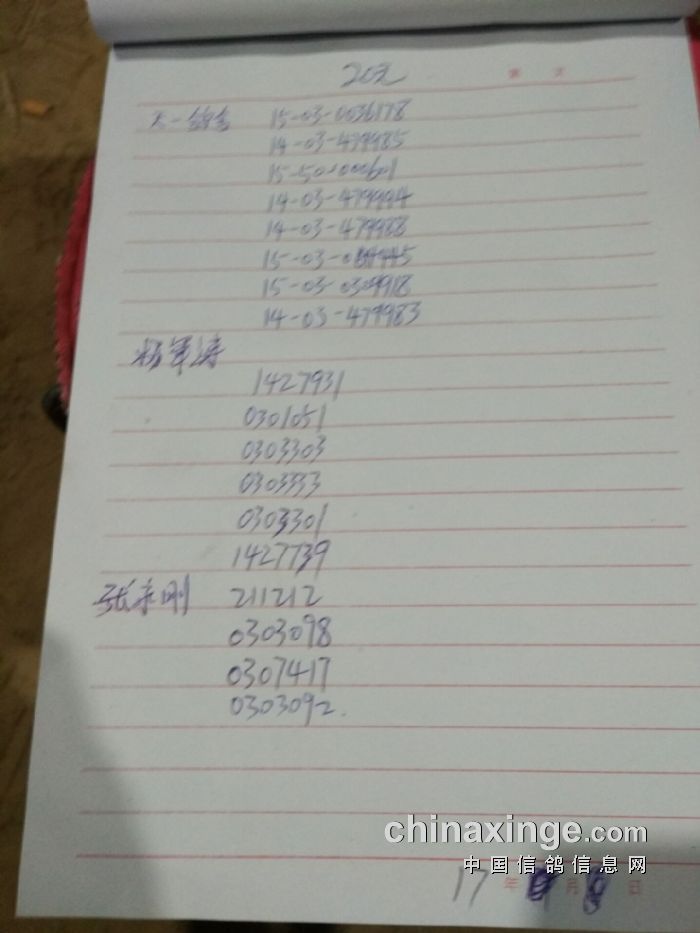 20元
第 页
天一鸽舍 15-03-0036178
14-03-479985
15-50-000601
14-03-479994
14-03-479988
15-03-
15-03-0309918
14-03-479983
杨军涛
1427931
0301051
0303303
0303333
0303301
1427739
张永刚 211212
0303098
0307417
0303092.
chinaxinge.com
中国信鸽信息网
17 年 月 日